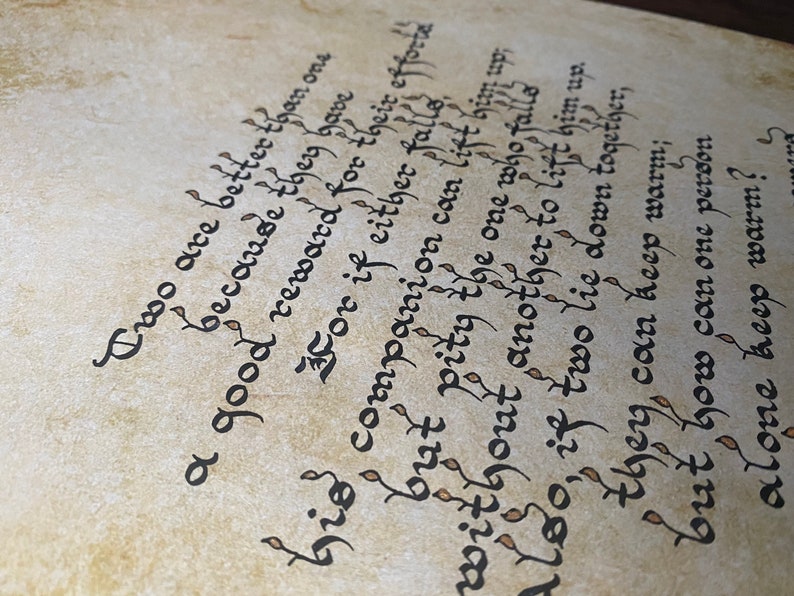 Two are better than one
because they have
a good reward for their efforts
For if either falls,
his companion can lift him up;
but pity the one who falls
without another to lift him up.
Also, if two lie down together,
they can keep warm;
but how can one person
alone keep warm?